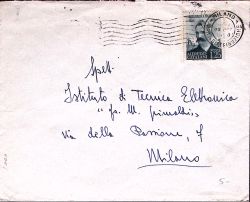 MILANO
Spett.
Istituto di Tecnica Elettronica
"G. M. Grimaldi"
via della Passione, 7
Milano
5-